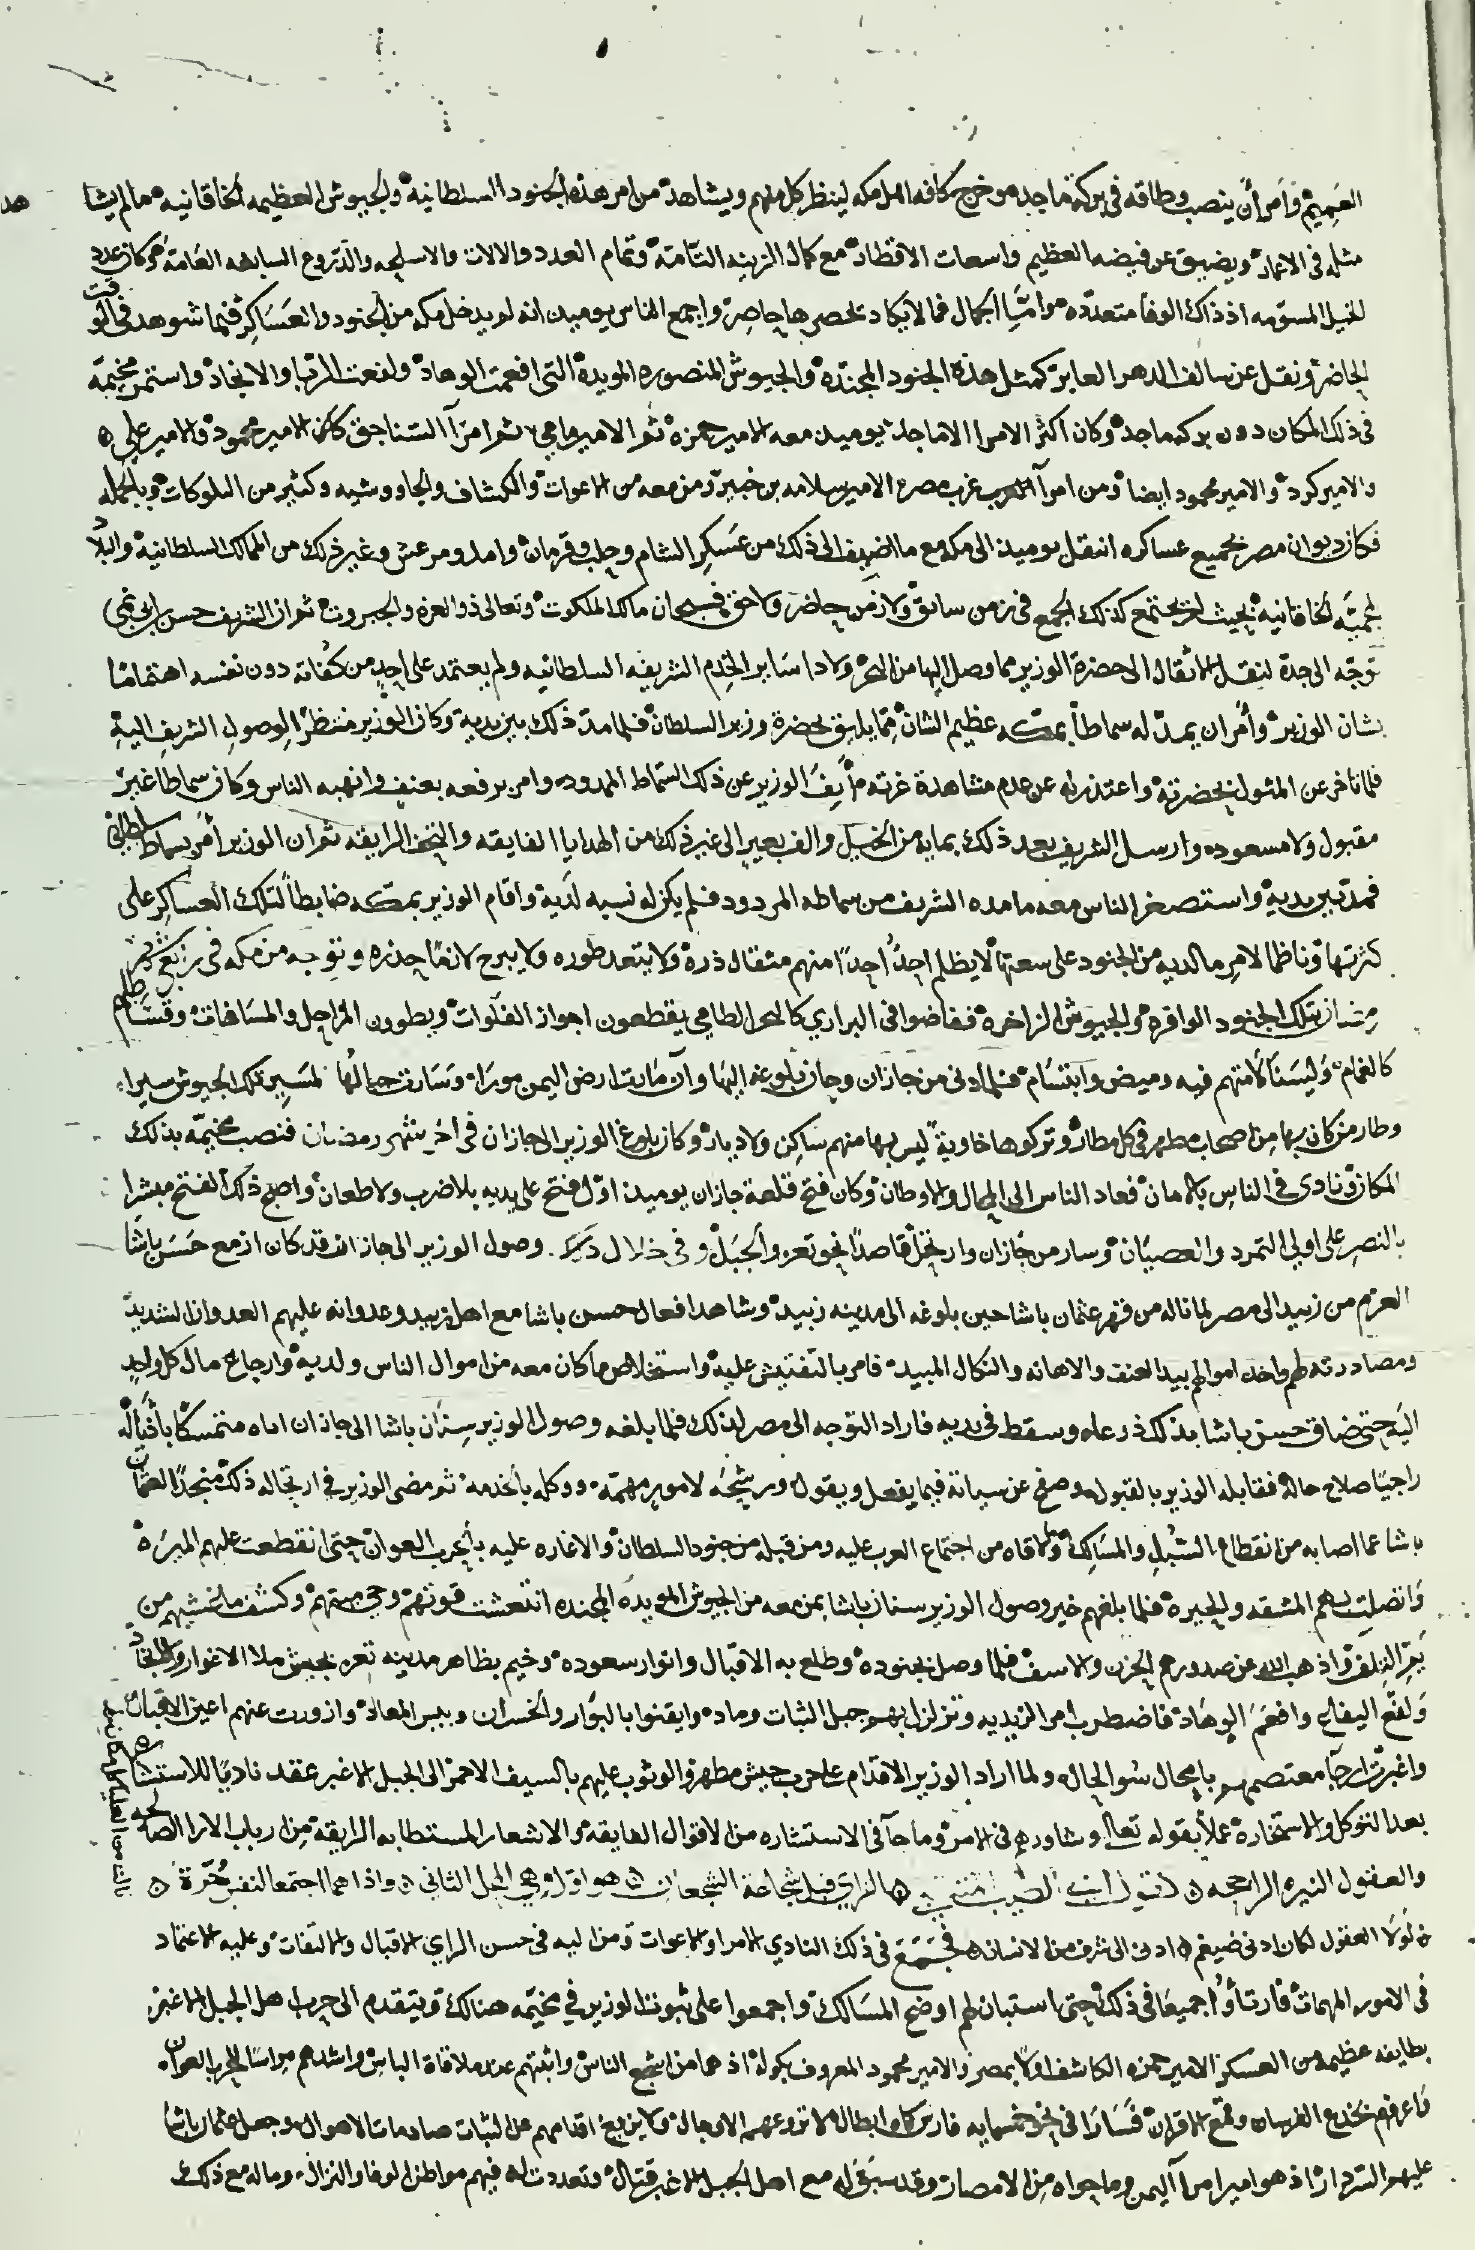 العميم وأمر أن ينصب وطاقه في بركة ماجد وخرج كافة اهل مكه لينظر كل منهم ويشاهد من امر هذه الجنود السلطانية والجيوش العظيمه الخاقانيه ما لم يشا هد
مثله في الاعمار ويضيق عن فيضه العظيم واسعات الاقطار مع كمال الزينه التامة وتمام العدد والالات والاسلحه والدروع السابغه العامة وكان عدد
الخيل المسومه اذ ذاك الوفا متعدده واما الجمال فما لا يكاد يحصرها حاصر واجمع الناس يوميذ انه لم يدخل مكه من الجنود والعساكر فيما شوهد في الوقت
الحاضر ونقل عن سالف الدهر الغابر كمثل هذه الجنود المجنده والجيوش المنصوره المويدة التي افعمت الوهاد ولفعت الربا والانجاد واستمر مخيمه
في ذلك المكان دون بركه ماجد وكان اكثر الامرا الاماجد يوميذ معه الامير حمزه ثم الامير مامي ثم امرآ السناجق كان الامير محمود والامير علي
والامير كرد والامير محمود ايضا ومن امرآ العرب عرب مصر الامير سلامه بن خبير ومن معه من الاغوات والكشاف والجاووشيه وكثير من البلوكات وبالجمله
فكان ديوان مصر بجميع عساكره انتقل يوميذ الى مكه مع ما اضيف الى ذلك من عسكر الشام وحلب وقرمان وامد ومرعش وغير ذلك من الممالك السلطانية والبلاد
المحميه الخاقانيه بحيث لم يجتمع كذلك الجمع في زمن سابق ولا زمن حاضر ولا حق فسبحان مالك الملكوت وتعالى ذو العزه والجبروت ثم ان الشريف حسن بن ابي نمي
توجه الى جدة لنقل الاثقال الى حضرة الوزير مما وصل اليها من البحر ولاداء ساير الخدم الشريفه السلطانيه ولم يعتمد على احد من كفاته دون نفسه اهتماما
بشان الوزير وأمر ان يمد له سماطا بمكه عظيم الشان مما يليق لحضرة وزير السلطان فلما مد ذلك بين يديه وكان الوزير منتظرا لوصول الشريف اليه
فلما تاخر عن المثول بحضرته واعتذر له عن عدم مشاهدة غرته أنف الوزير عن ذلك السماط الممدود وامر برفعه بعنف وانهبه الناس وكان سماطا غير
مقبول ولا مسعود وارسل الشريف بعد ذلك بمايه من الخيل والف بعير الى غير ذلك من الهدايا الفايقه والتحف الرايقه ثم ان الوزير أمر بسماط سلطاني
فمد بين يديه واستصغر الناس معه ما مده الشريف من سماطه المردود فلم يكن له نسبه لديه واقام الوزير بمكه ضابطا لتلك العساكر على
كثرتها وناظما لامر ما لديه من الجنود على سعتها لا يظلم احد احدا منهم مثقال ذرة ولا يتعد طوره ولا يبرح لازما حذره وتوجه من مكه في
تلك الجنود الوافره والجيوش الزاخره ففاضوا في البراري كالبحر الطامي يقطعون اجواز الفلوات ويطوون المراحل والمسافات وقتام
كالغمام ولبسنا لأمتهم فيه وميض وابتسام فلما دنى من جازان وحان بلوغه اليها وآن مارت ارض اليمن مورا وسارت جبالها لمسير تلك الجيوش سيرا
وطار من كان بها من اصحاب مطهر في كل مطار وتركوها خاوية ليس بها منهم ساكن ولا ديار وكان بلوغ الوزير الى جازان في اخر شهر رمضان فنصب مخيمه بذلك
المكان ونادى في الناس بالامان فعاد الناس الى المحال والاوطان وكان فتح قلعة جازان يوميذ اول فتح على يديه بلا ضرب ولا طعان واصبح ذلك الفتح مبشرا
بالنصر على اولي التمرد والعصيان وسار من جازان وارتحل قاصدا نحو تعز والجبل وفي خلال ذلك وصول الوزير الى جازان قد كان ازمع حسن باشا
العزم من زبيد الى مصر لما ناله من قهر عثمان باشا حين بلوغه الى مدينه زبيد وشاهد افعال حسن باشا مع اهل زبيد وعدوانه عليهم العدوان الشديد
ومصادرته لهم واخذ اموالهم بيد العنف والاهانه والنكال المبيد فامر بالتفتيش عليه واستخلاص ما كان معه من اموال الناس ولديه وارجاع مال كل واحد
اليه حتى ضاق حسن باشا بذلك ذرعا وسقط في يديه فاراد التوجه الى مصر لذلك فلما بلغه وصول الوزير سنان باشا الى جازان اتاه متمسكا بأذياله
راجيا صلاح حاله فقابله الوزير بالقبول وصفح عن سياته فيما يفعل ويقول ورشحه لامور مهمه ووكله بالخدمه ثم مضى الوزير في ارتحاله ذلك منجدا لعثمان
باشا مما اصابه من انقطاع السبل والمسالك وما لاقاه من اجتماع العرب عليه ومن قبله من جنود السلطان والاغاره عليه بالحرب العوان حتى انقطعت عليهم الميرة
واتصلت بهم المشقه والحيره فلما بلغهم خبر وصول الوزير سنان باشا بمن معه من الجيوش المويده المجنده انتعشت قوتهم وحيي ميتهم وكشف ما غشيهم من
يم التلف واذهب الله عن صدورهم الحزن والاسف فلما وصل بجنوده وطلع به الاقبال وانوار سعوده وخيم بظاهر مدينه تعز بجيش ملا الاغوار والانجاد
ولفع اليفاع وافعم الوهاد فاضطرب امر الزيديه وتزلزل بهم جبل الثبات وماد وايقنوا بالبوار والخسران وبيس المعاد وازورت عنهم اعين الاقبال
واغبرت ارجا معتصمهم بايحال سو الحال ولما اراد الوزير الاقدام على حرب جيش مطهر والوثوب عليهم بالسيف الاحمر الى الجبل الاغبر عقد ناديا للاستشاره
بعد التوكل والاستخاره عملا بقوله تعالى وشاورهم في الامر وما جآ في الاستشاره من الاقوال الفايقه والاشعار المستطابه الرايقه من ارباب الارا الصالحه
والعقول النيره الراجحه كقول ابي الطيب المتنبي الراي قبل شجاعة الشجعان هو اول وهي المحل الثاني واذا هما اجتمعا لنفس حرة
لولا العقول لكان ادنى ضيغم ادنى الى شرف من الانسان فجمع في ذلك النادي الامرا والاغوات ومن اليه في حسن الراي الاقبال والالتفات وعليه الاعتماد
في الامور المهمات فارتأوا جميعا في ذلك حتى استبان لهم اوضح المسالك واجمعوا على ثبوت الوزير في مخيمه هنالك ويتقدم الى حرب اهل الجبل الاغبر
بطايفه عظيمه من العسكر الامير حمزه الكاشف اولا بمصر والامير محمود المعروف بكوله اذ هما من اشجع الناس واثبتهم عند ملاقاة الباس واشدهم مراسا للحرب العوان
واعرفهم بخدع الفرسان وقمع الاقران فسارا في نحو خمسمايه فارس كلهم ابطال لا تروعهم الاوجال ولا يزيغ اقدامهم عن الثبات صادمات الاهوال وجعل عثمان باشا
عليهم السردار اذ هو امير امرآ اليمن وما حواه من الامصار وقد سبق له مع اهل الجبل الاغبر قتال وتعددت له فيهم مواطن الوغا والنزال وماله مع ذلك